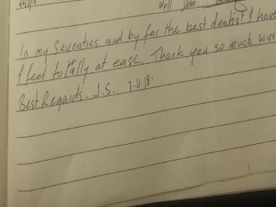 Well Done
In my Seventies and by far the best dentist I have
I feel totally at ease. Thank you so much
Best Regards. J.S. 7.11.18.